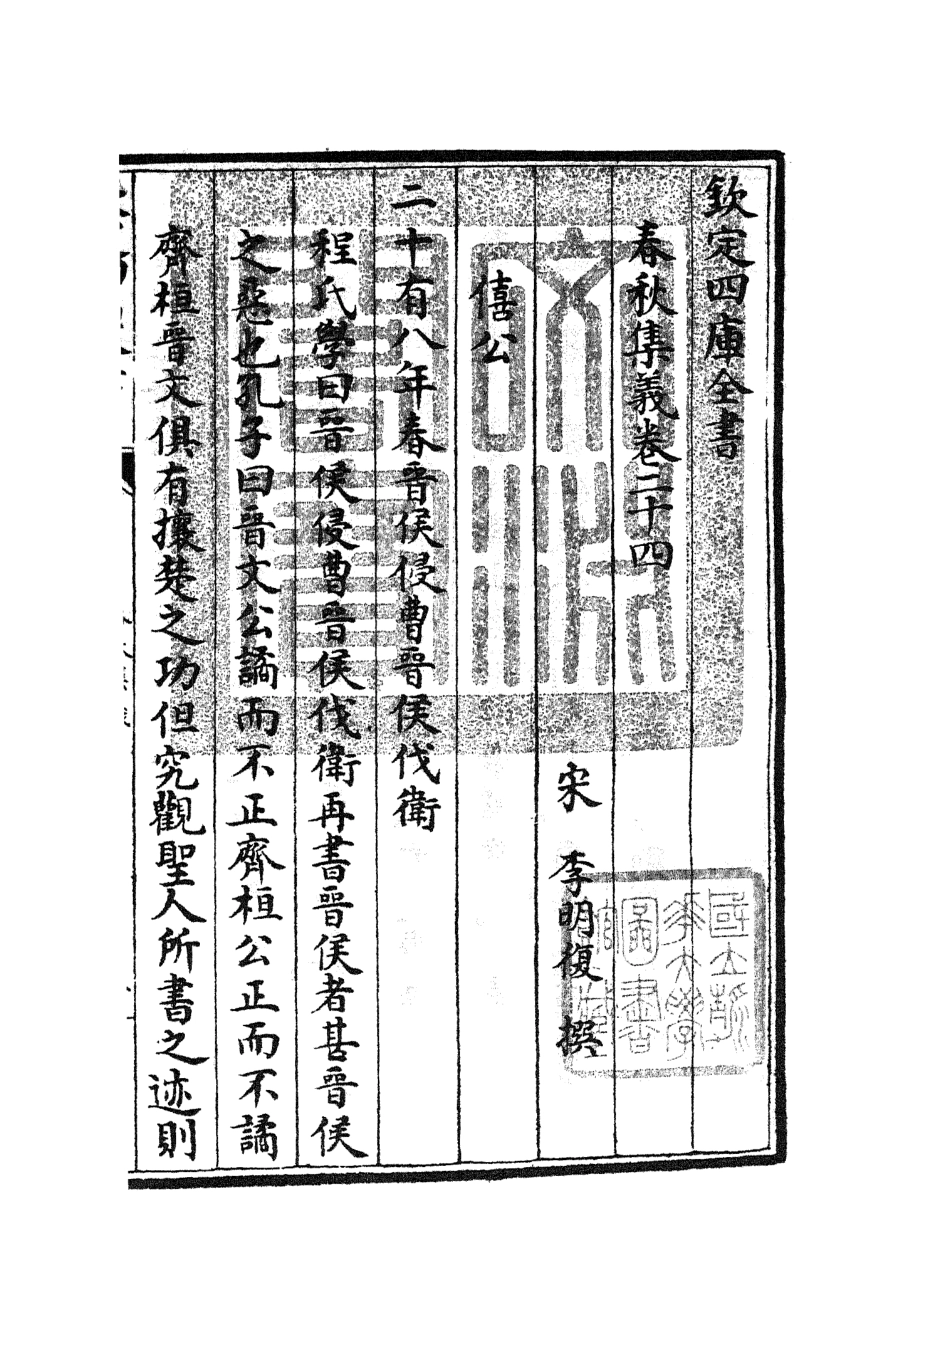 欽定四庫全書
春秋集義卷二十四
宋 李明復 撰
僖公
二十有八年春晉侯侵曹晉侯伐衛
程氏學曰晉侯侵曹晉侯伐衛再書晉侯者甚晉侯
之惡也孔子曰晉文公譎而不正齊桓公正而不譎
齊桓晉文俱有攘楚之功但究觀聖人所書之迹則
國立清
華大學
圖書
館藏